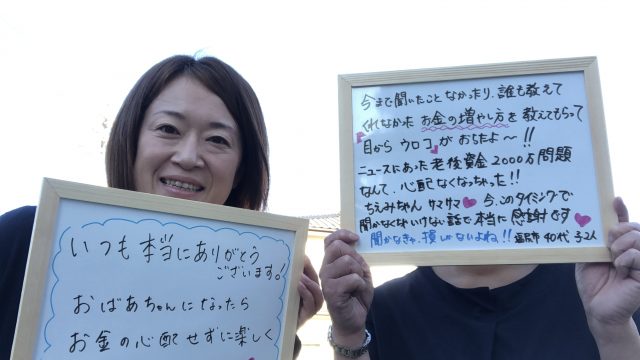 いつも本当にありがとう
ございます!
おばあちゃんになったら
お金の心配せずに楽しく
今まで聞いたことなかったり、誰も教えて
くれなかった お金の増やし方を教えてもらって
目からウロコがおちたよ〜!!
ニュースにあった老後資金2000万問題
なんて、心配なくなっちゃった!!
ちえみちゃん サマサマ♥今、このタイミングで
聞かなくちゃいけない話で本当に感謝です
聞かなきゃ、損しかないよね!! 40代 子2人